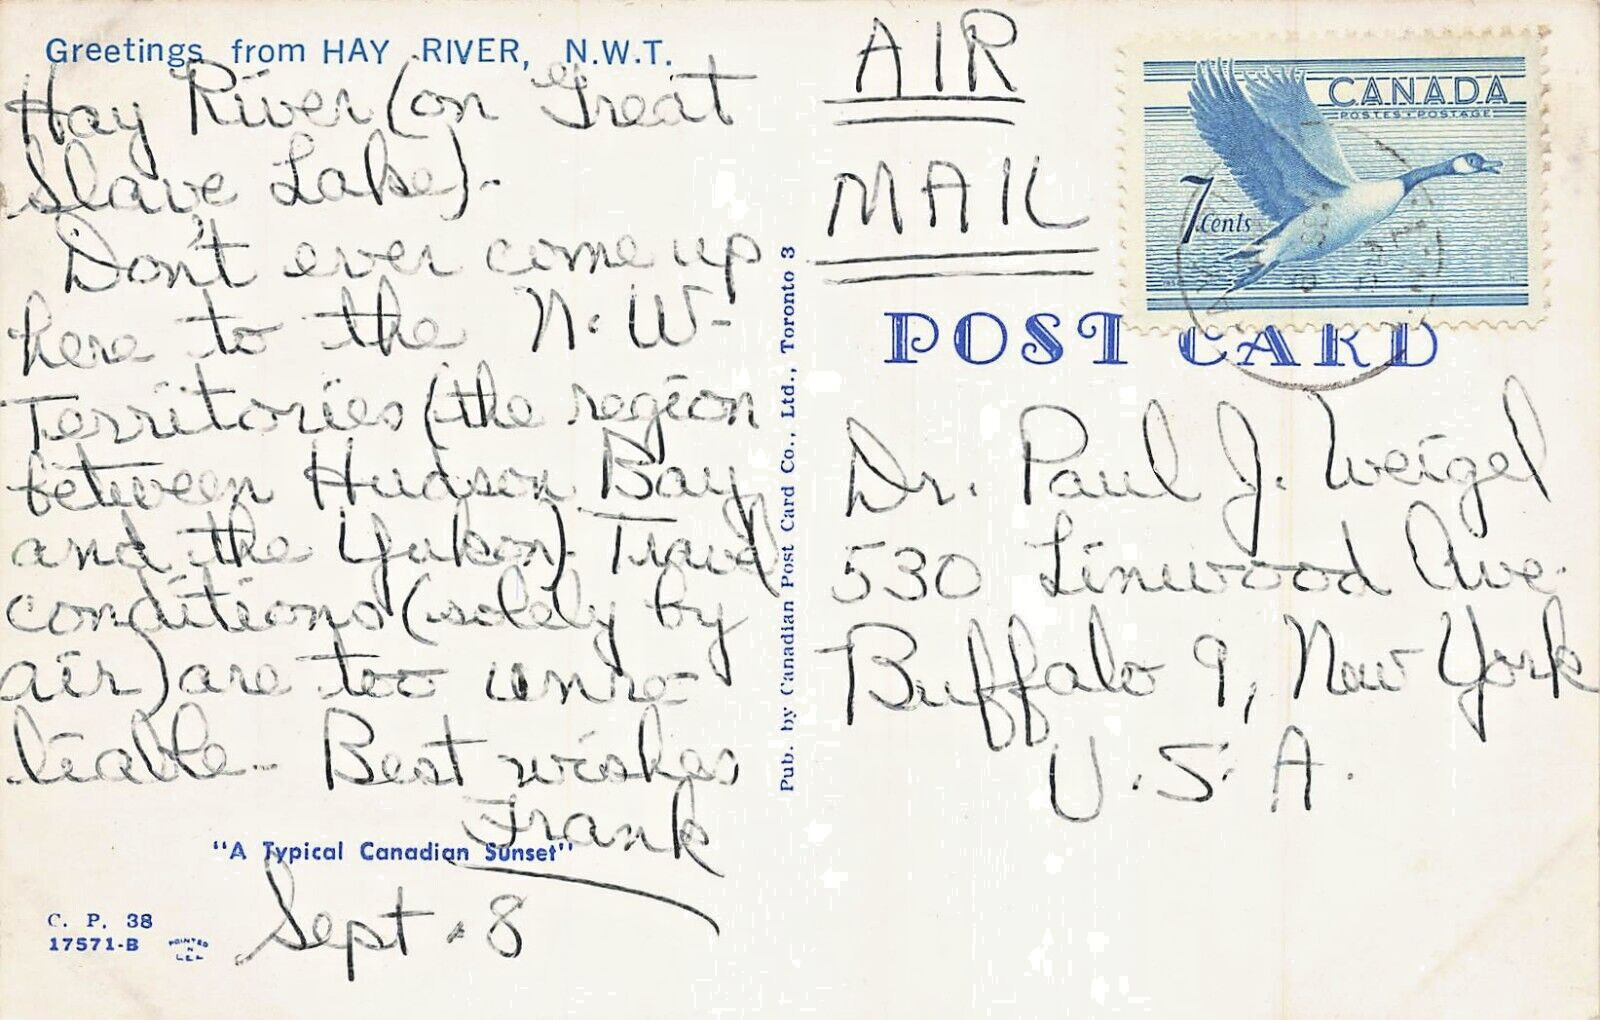 Greetings from HAY RIVER, N.W.T.
Hay River (on Great
Slave Lake).-
Don't ever come up
here to the N.W-
Territories (the region
between Hudson Bay
and the Yukon). Travel
conditions (solely by
air) are too unre-
liable - Best wishes
Frank
"A Typical Canadian Sunset"
Sept. 8
C. P. 38
17571-B
PRINTED
IN
U.S.A.
Pub. by Canadian Post Card Co., Ltd., Toronto 3
AIR
MAIL
CANADA
POSTES · POSTAGE
7 cents
POST CARD
Dr. Paul J. Weigel
530 Linwood Ave.
Buffalo 9, New York
U.S.A.